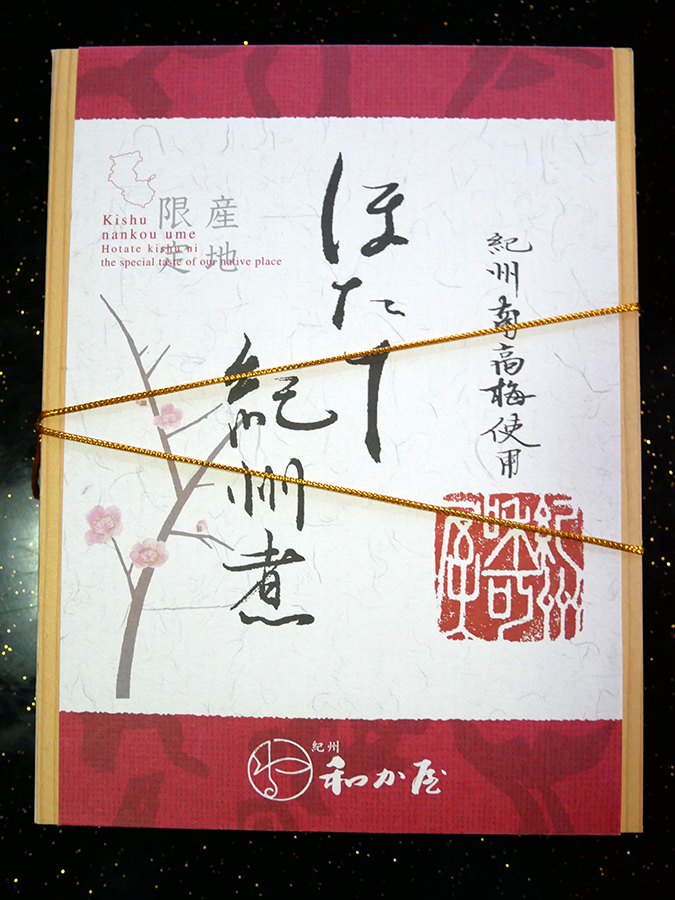 産地
限定
Kishu
nankou ume
Hotate kishu ni
the special taste of our native place
紀州南高梅使用
ほたて
紀州煮
紀州
紀州
和か屋